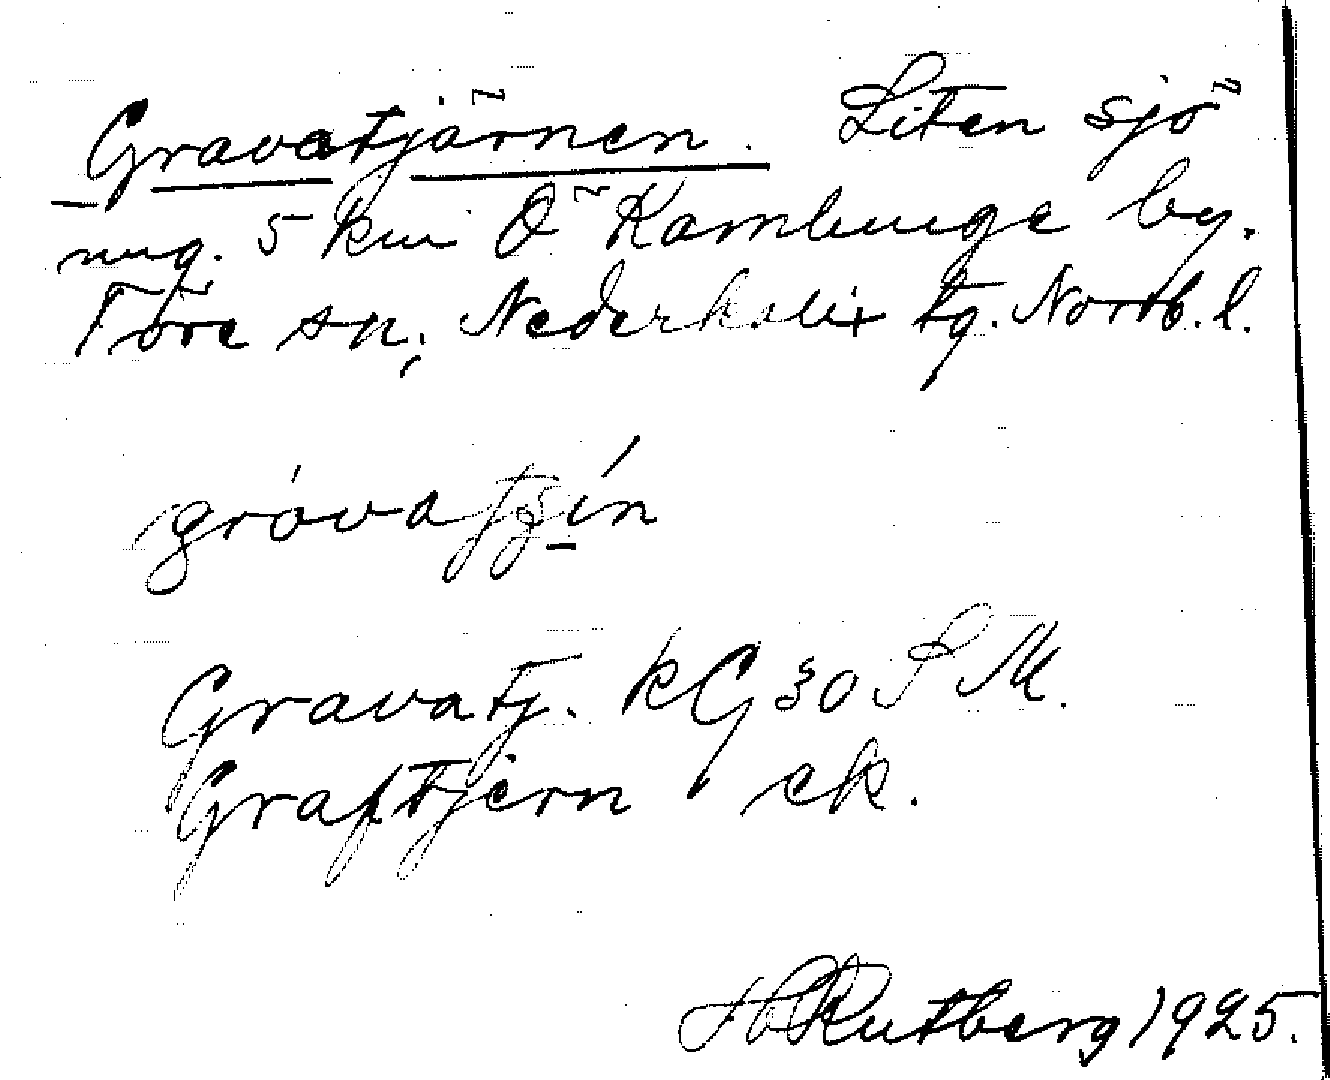 Gravatjärnen. Liten sjö
ung. 5 km Ö Kamlunge by.
Töre sn, Nederkalix tg. Norrb. l.
gròvatjín
Gravatj. kG 30 S M.
Graftjern ek.
H Rutberg 1925.